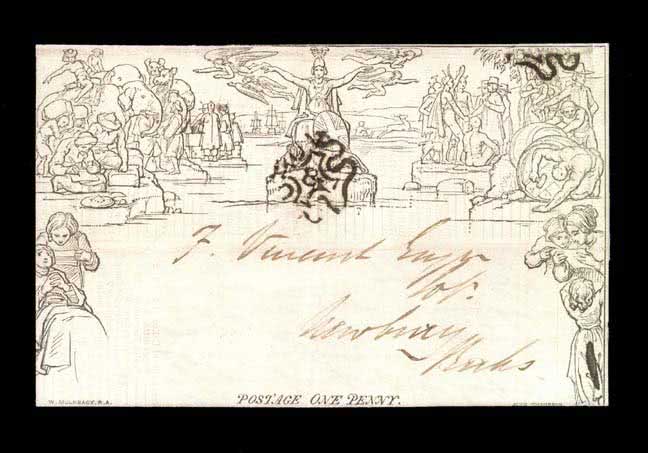 F. Vincent Esqr
Newbury
Berks
POSTAGE ONE PENNY.
W. MULREADY, R.A.